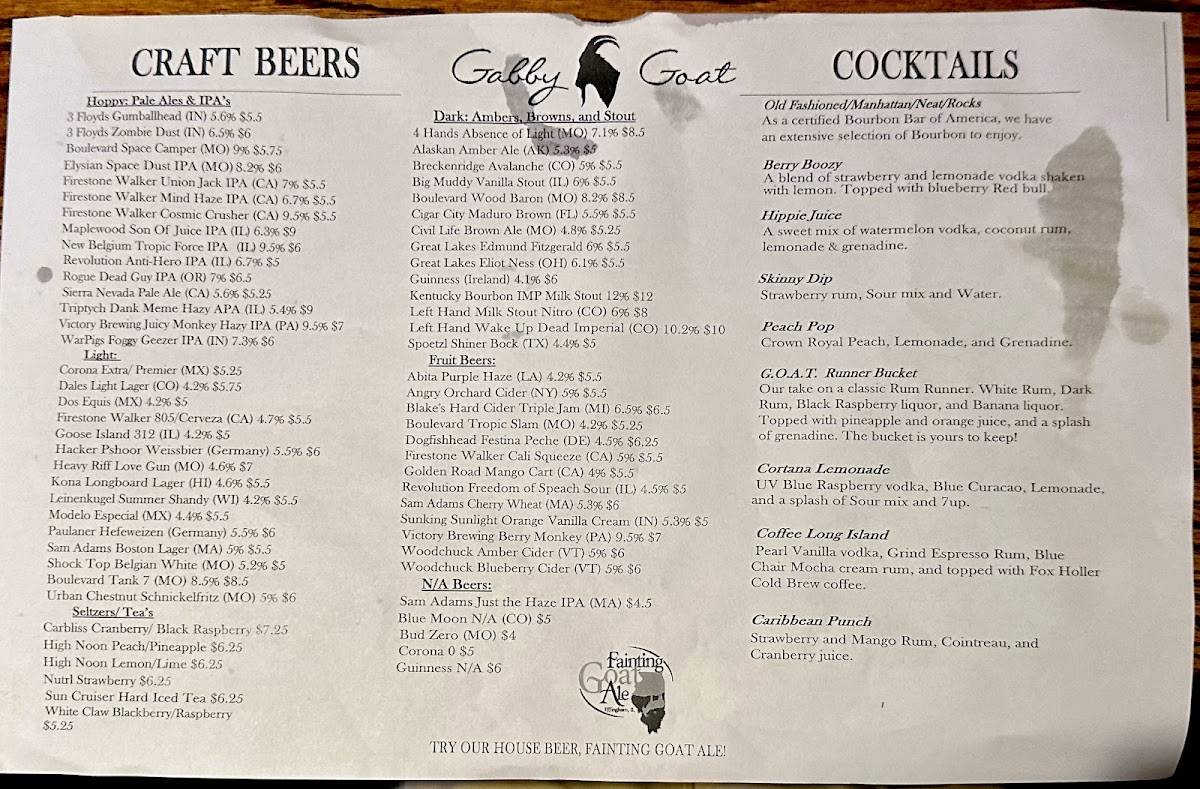 CRAFT BEERS
Hoppy: Pale Ales & IPA's
3 Floyds Gumballhead (IN) 5.6% $5.5
3 Floyds Zombie Dust (IN) 6.5% $6
Boulevard Space Camper (MO) 9% $5.75
Elysian Space Dust IPA (MO) 8.2% $6
Firestone Walker Union Jack IPA (CA) 7% $5.5
Firestone Walker Mind Haze IPA (CA) 6.7% $5.5
Firestone Walker Cosmic Crusher (CA) 9.5% $5.5
Maplewood Son Of Juice IPA (IL) 6.3% $9
New Belgium Tropic Force IPA (IL) 9.5% $6
Revolution Anti-Hero IPA (IL) 6.7% $5
Rogue Dead Guy IPA (OR) 7% $6.5
Sierra Nevada Pale Ale (CA) 5.6% $5.25
Triptych Dank Meme Hazy APA (IL) 5.4% $9
Victory Brewing Juicy Monkey Hazy IPA (PA) 9.5% $7
WarPigs Foggy Geezer IPA (IN) 7.3% $6
Light:
Corona Extra/ Premier (MX) $5.25
Dales Light Lager (CO) 4.2% $5.75
Dos Equis (MX) 4.2% $5
Firestone Walker 805/Cerveza (CA) 4.7% $5.5
Goose Island 312 (IL) 4.2% $5
Hacker Pshoor Weissbier (Germany) 5.5% $6
Heavy Riff Love Gun (MO) 4.6% $7
Kona Longboard Lager (HI) 4.6% $5.5
Leinenkugel Summer Shandy (WI) 4.2% $5.5
Modelo Especial (MX) 4.4% $5.5
Paulaner Hefeweizen (Germany) 5.5% $6
Sam Adams Boston Lager (MA) 5% $5.5
Shock Top Belgian White (MO) 5.2% $5
Boulevard Tank 7 (MO) 8.5% $8.5
Urban Chestnut Schnickelfritz (MO) 5% $6
Seltzers/ Tea's
Carbliss Cranberry/ Black Raspberry $7.25
High Noon Peach/Pineapple $6.25
High Noon Lemon/Lime $6.25
Nutrl Strawberry $6.25
Sun Cruiser Hard Iced Tea $6.25
White Claw Blackberry/Raspberry
$5.25
Gabby Goat
Dark: Ambers, Browns, and Stout
4 Hands Absence of Light (MO) 7.1% $8.5
Alaskan Amber Ale (AK) 5.3% $5
Breckenridge Avalanche (CO) 5% $5.5
Big Muddy Vanilla Stout (IL) 6% $5.5
Boulevard Wood Baron (MO) 8.2% $8.5
Cigar City Maduro Brown (FL) 5.5% $5.5
Civil Life Brown Ale (MO) 4.8% $5.25
Great Lakes Edmund Fitzgerald 6% $5.5
Great Lakes Eliot Ness (OH) 6.1% $5.5
Guinness (Ireland) 4.1% $6
Kentucky Bourbon IMP Milk Stout 12% $12
Left Hand Milk Stout Nitro (CO) 6% $8
Left Hand Wake Up Dead Imperial (CO) 10.2% $10
Spoetzl Shiner Bock (TX) 4.4% $5
Fruit Beers:
Abita Purple Haze (LA) 4.2% $5.5
Angry Orchard Cider (NY) 5% $5.5
Blake's Hard Cider Triple Jam (MI) 6.5% $6.5
Boulevard Tropic Slam (MO) 4.2% $5.25
Dogfishhead Festina Peche (DE) 4.5% $6.25
Firestone Walker Cali Squeeze (CA) 5% $5.5
Golden Road Mango Cart (CA) 4% $5.5
Revolution Freedom of Speach Sour (IL) 4.5% $5
Sam Adams Cherry Wheat (MA) 5.3% $6
Sunking Sunlight Orange Vanilla Cream (IN) 5.3% $5
Victory Brewing Berry Monkey (PA) 9.5% $7
Woodchuck Amber Cider (VT) 5% $6
Woodchuck Blueberry Cider (VT) 5% $6
N/A Beers:
Sam Adams Just the Haze IPA (MA) $4.5
Blue Moon N/A (CO) $5
Bud Zero (MO) $4
Corona 0 $5
Guinness N/A $6
Fainting
Goat
Ale
Effingham, IL
TRY OUR HOUSE BEER, FAINTING GOAT ALE!
COCKTAILS
Old Fashioned/Manhattan/Neat/Rocks
As a certified Bourbon Bar of America, we have
an extensive selection of Bourbon to enjoy.
Berry Boozy
A blend of strawberry and lemonade vodka shaken
with lemon. Topped with blueberry Red bull.
Hippie Juice
A sweet mix of watermelon vodka, coconut rum,
lemonade & grenadine.
Skinny Dip
Strawberry rum, Sour mix and Water.
Peach Pop
Crown Royal Peach, Lemonade, and Grenadine.
G.O.A.T. Runner Bucket
Our take on a classic Rum Runner. White Rum, Dark
Rum, Black Raspberry liquor, and Banana liquor.
Topped with pineapple and orange juice, and a splash
of grenadine. The bucket is yours to keep!
Cortana Lemonade
UV Blue Raspberry vodka, Blue Curacao, Lemonade,
and a splash of Sour mix and 7up.
Coffee Long Island
Pearl Vanilla vodka, Grind Espresso Rum, Blue
Chair Mocha cream rum, and topped with Fox Holler
Cold Brew coffee.
Caribbean Punch
Strawberry and Mango Rum, Cointreau, and
Cranberry juice.